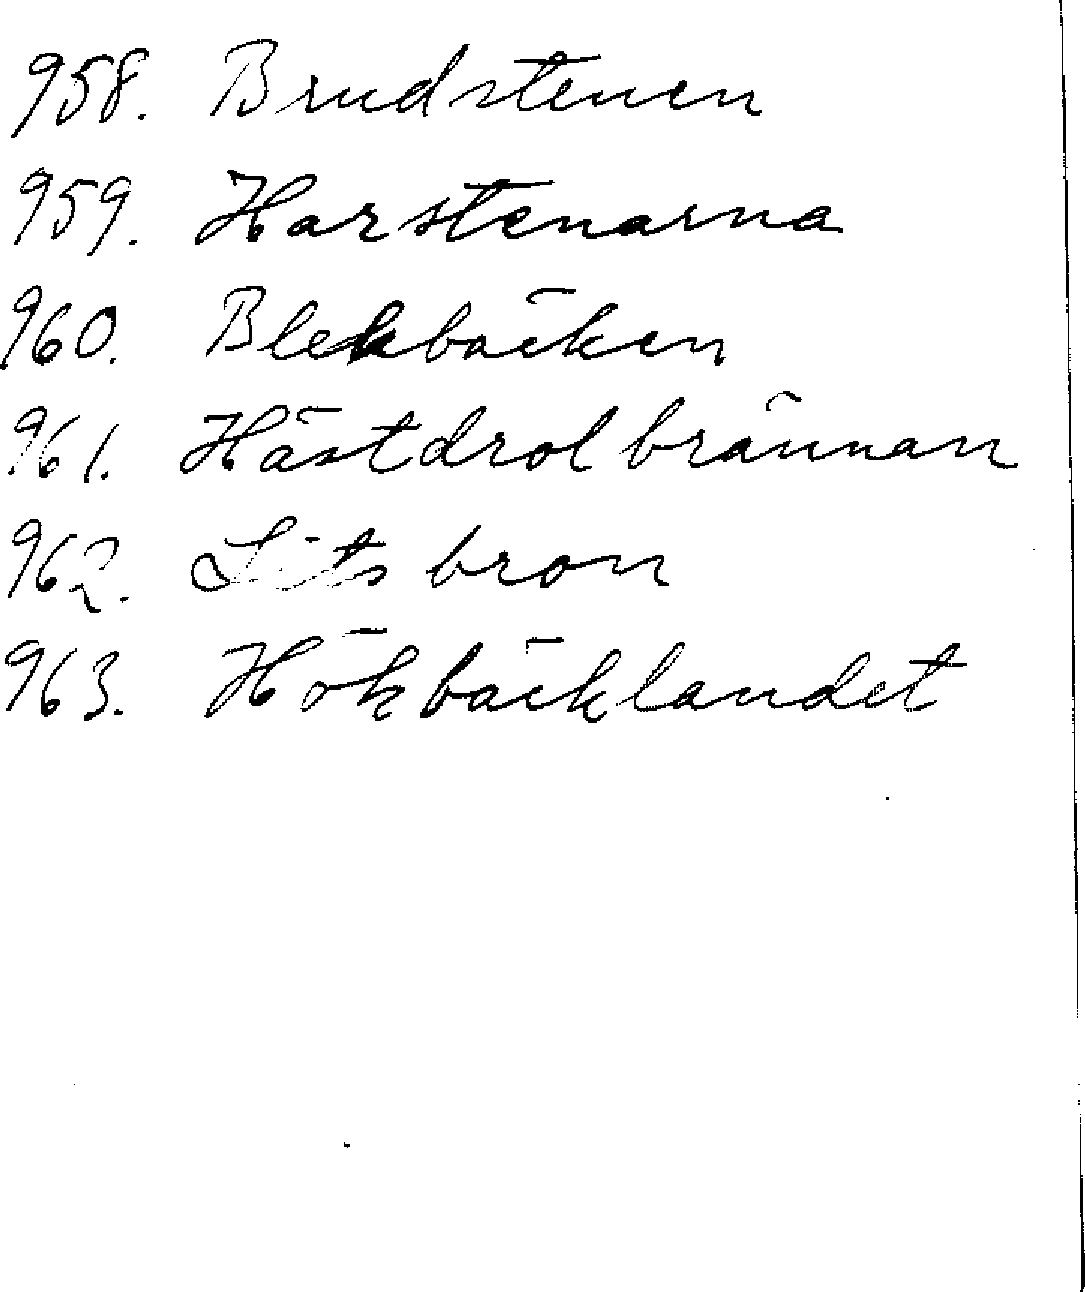 958. Brudstenen
959. Harstenarna
960. Blekbäcken
961. Hästdrolbrännan
962. Litsbron
963. Hökbäcklandet